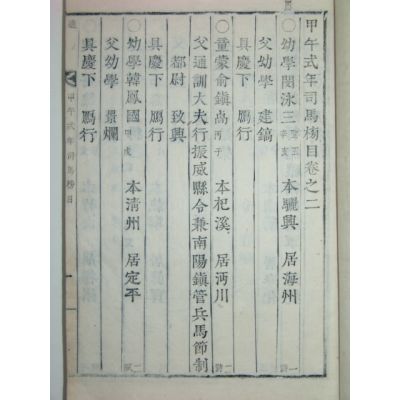 甲午式年司馬榜目卷之二
〇幼學閔泳三 辛亥 本驪興 居海州 一詩
父幼學 建鎬
具慶下 鴈行
〇童蒙俞鎮卨 丙子 本杞溪 居沔川 一詩
父通訓大夫行振威縣令兼南陽鎮管兵馬節制
都尉 致興
具慶下 鴈行
〇幼學韓鳳國 本清州 居定平 二賦
父幼學 景爛
具慶下 鴈行
甲午式年司馬榜目